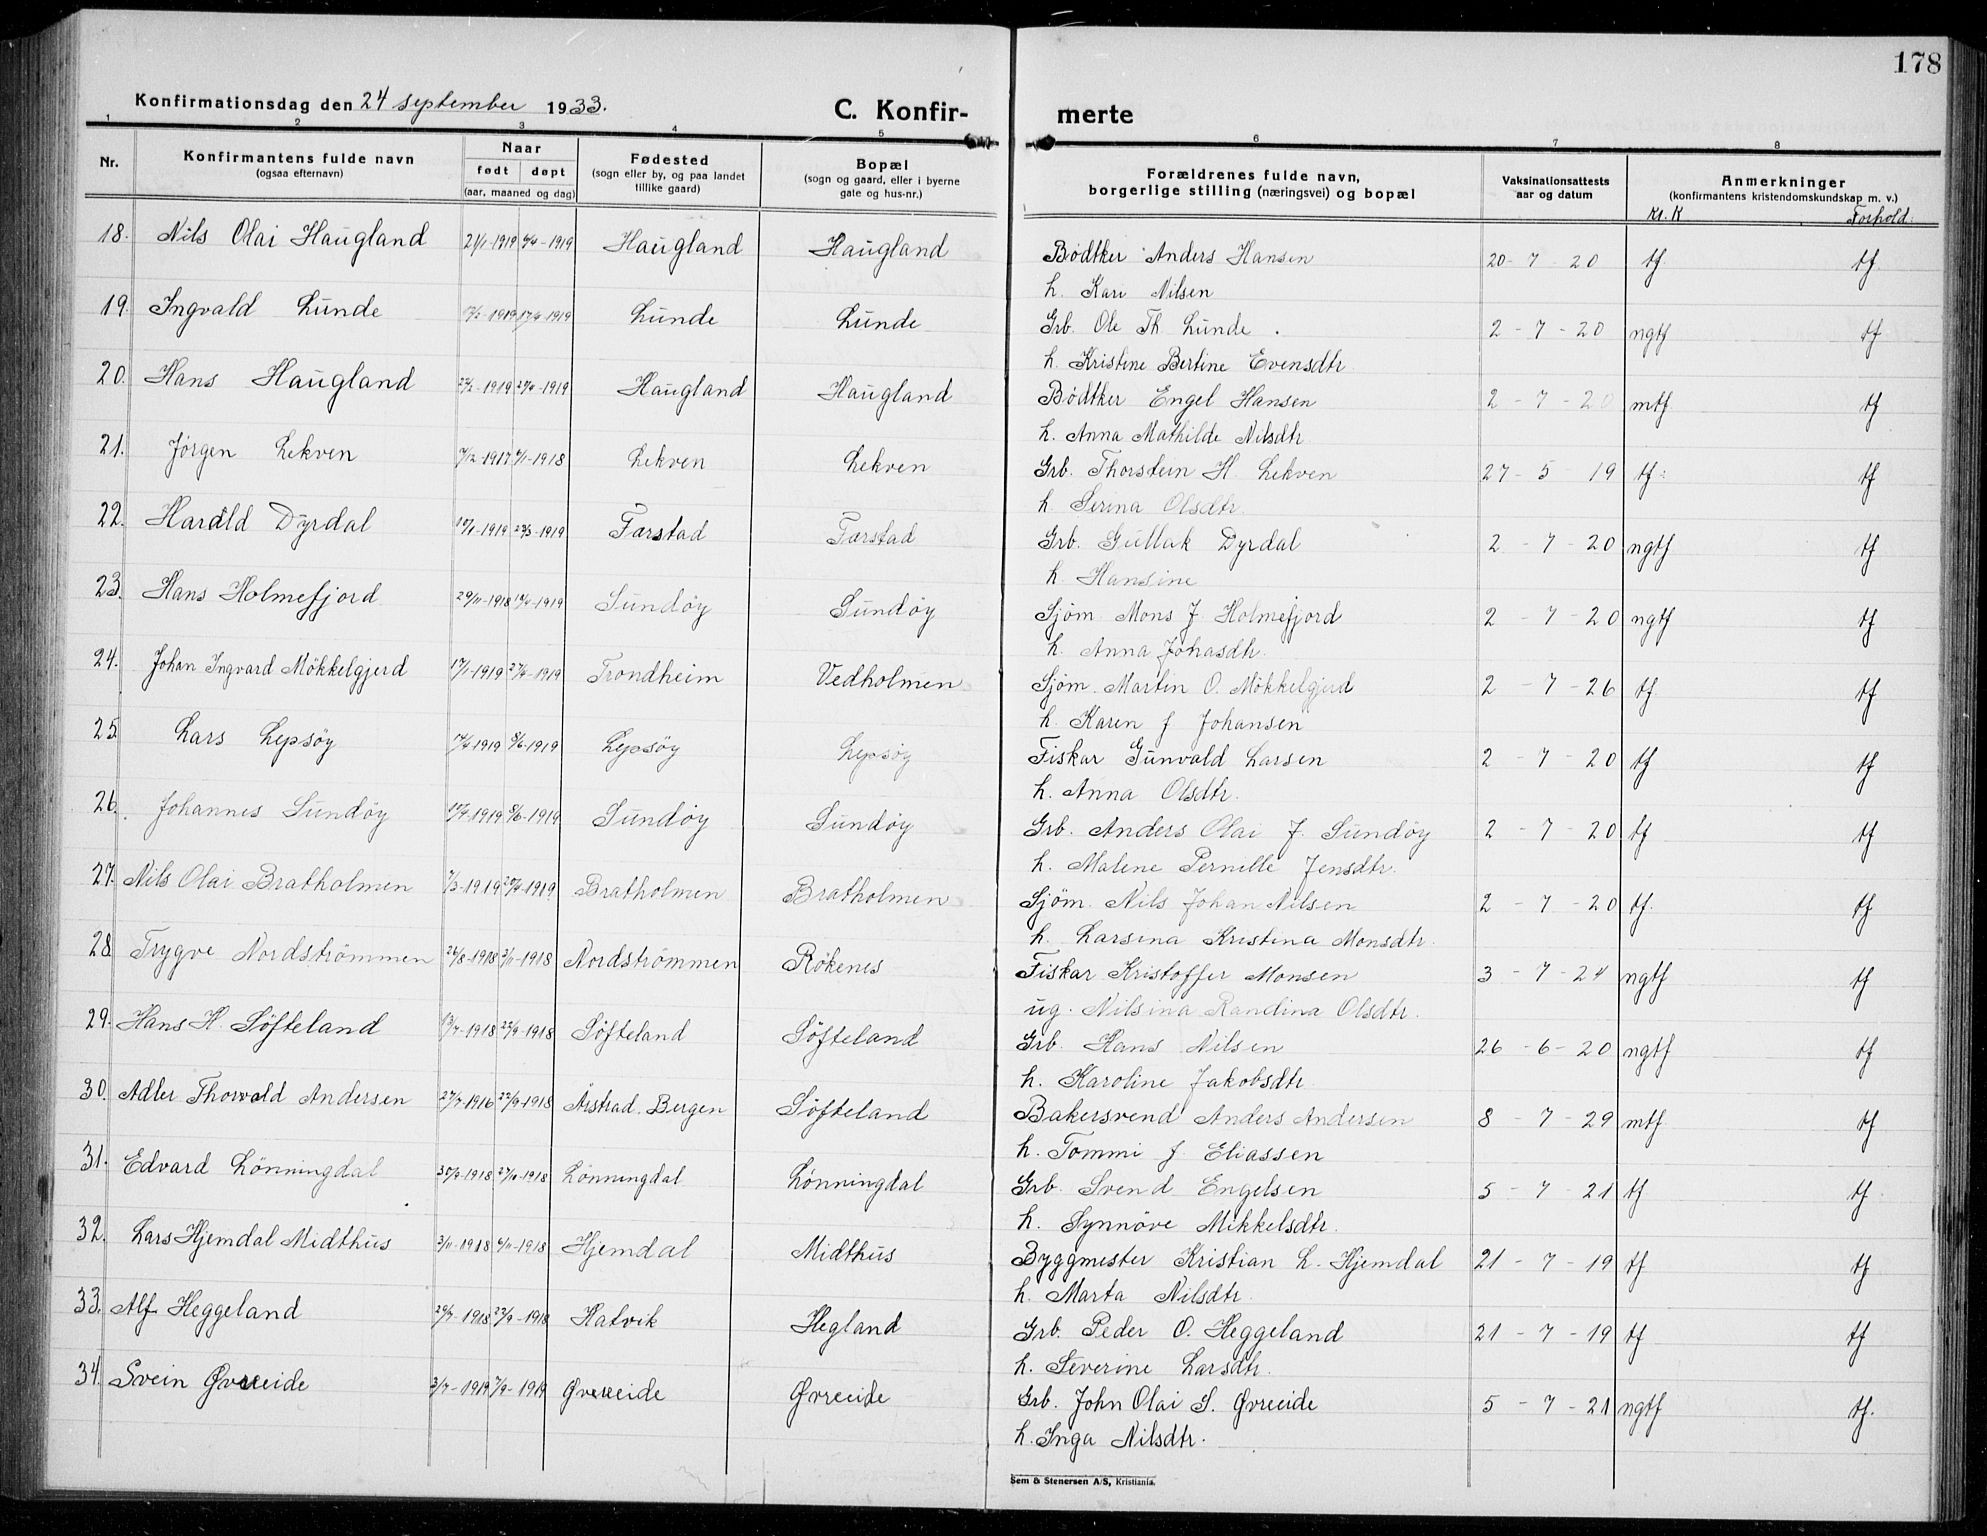 178
Konfirmationsdag den 24 september 1933.
C. Konfir-
merte
1 2 3 4 5 6 7 8
Nr.
Konfirmantens fulde navn
(ogsaa efternavn)
Naar
født døpt
(aar, maaned og dag)
Fødested
(sogn eller by, og paa landet
tillike gaard)
Bopæl
(sogn og gaard, eller i byerne
gate og hus-nr.)
Forældrenes fulde navn,
borgerlige stilling (næringsvei) og bopæl
Vaksinationsattests
aar og datum
Anmerkninger
(konfirmantens kristendomskundskap m. v.)
Kr. K Forhold.
18. Nils Olai Haugland 2/1-1919 6/4-1919 Haugland Haugland Bødtker Anders Hansen 20-7-20 tf tf
h. Kari Nilsen
19. Ingvald Lunde 1919 17/4-1919 Lunde Lunde Grb. Ole Th. Lunde. 2-7-20 ngtf tf
h. Kristine Bertine Evensdtr
20. Hans Haugland 1919 1919 Haugland Haugland Bødtker Engel Hansen 2-7-20 mtf tf
h. Anna Mathilde Nilsdtr
21. Jørgen Lekven 1917 1918 Lekven Lekven Grb. Thorstein H. Lekven 27-5 19 tf tf
h. Serina Olsdtr.
22. Harald Dyrdal 1919 23/3-1919 Farstad Farstad Grb. Gullak Dyrdal 2-7-20 ngtf tf
h. Hansine
23. Hans Holmefjord 29/11-1918 1919 Sundøy Sundøy Sjøm Mons J Holmefjord 2-7-20 ngtf tf
h. Anna Johasdtr.
24. Johan Ingvard Mökkelgjerd 17/1-1919 27/4-1919 Trondheim Vedholmen Sjøm. Martin O. Mökkelgjerd 2-7-26 tf tf
h. Karen f Johansen
25. Lars Lepsøy 1919 8/6-1919 Lepsøy Lepsøy Fiskar Gunvald Larsen 2-7-20 tf tf
h. Anna Olsdtr.
26. Johannes Sundøy 1919 8/6-1919 Sundøy Sundøy Grb. Anders Olai J. Sundøy 2-7-20 tf tf
h. Malene Pernille Jensdtr.
27. Nils Olai Bratholmen 1919 1919 Bratholmen Bratholmen Sjøm. Nils Johan Nilsen 2-7-20 tf. tf
h. Larsina Kristina Monsdtr.
28. Trygve Nordstrømmen 24/8-1918 3/11-1918 Nordstrømmen Røkenes Fiskar Kristoffer Monsen 3-7-24 ngtf tf
ug. Nilsina Randina Olsdtr.
29. Hans H. Søfteland 13/7-1918 22/9-1918 Søfteland Søfteland Grb. Hans Nilsen 26-6-20 ngtf tf
h. Karoline Jakobsdtr.
30. Adler Thorvald Andersen 27/7-1916 22/9-1918 Årstad. Bergen Søfteland Bakersvend Anders Andersen 8-7-29 mtf tf
h. Tommi f. Eliassen
31. Edvard Lönningdal 30/9-1918 27/10-1918 Lönningdal Lönningdal Grb. Svend Engelsen 5-7-21 tf tf
h. Synnöve Mikkelsdtr.
32. Lars Hjemdal Midthus 1918 1918 Hjemdal Midthus Byggmester Kristian L. Hjemdal 21-7-19 tf tf
h. Marta Nilsdtr.
33. Alf Heggeland 29/7-1918 22/9-1918 Hatvik Hegland Grb. Peder O. Heggeland 21-7-19 tf tf
h. Severine Larsdtr.
34. Svein Øvreeide 3/7-1919 7/9-1919 Øvreeide Øvreeide Grb. John Olai S. Øvreeide 5-7-21 ngtf tf.
h. Inga Nilsdtr.
Sem & Stenersen A/S, Kristiania.